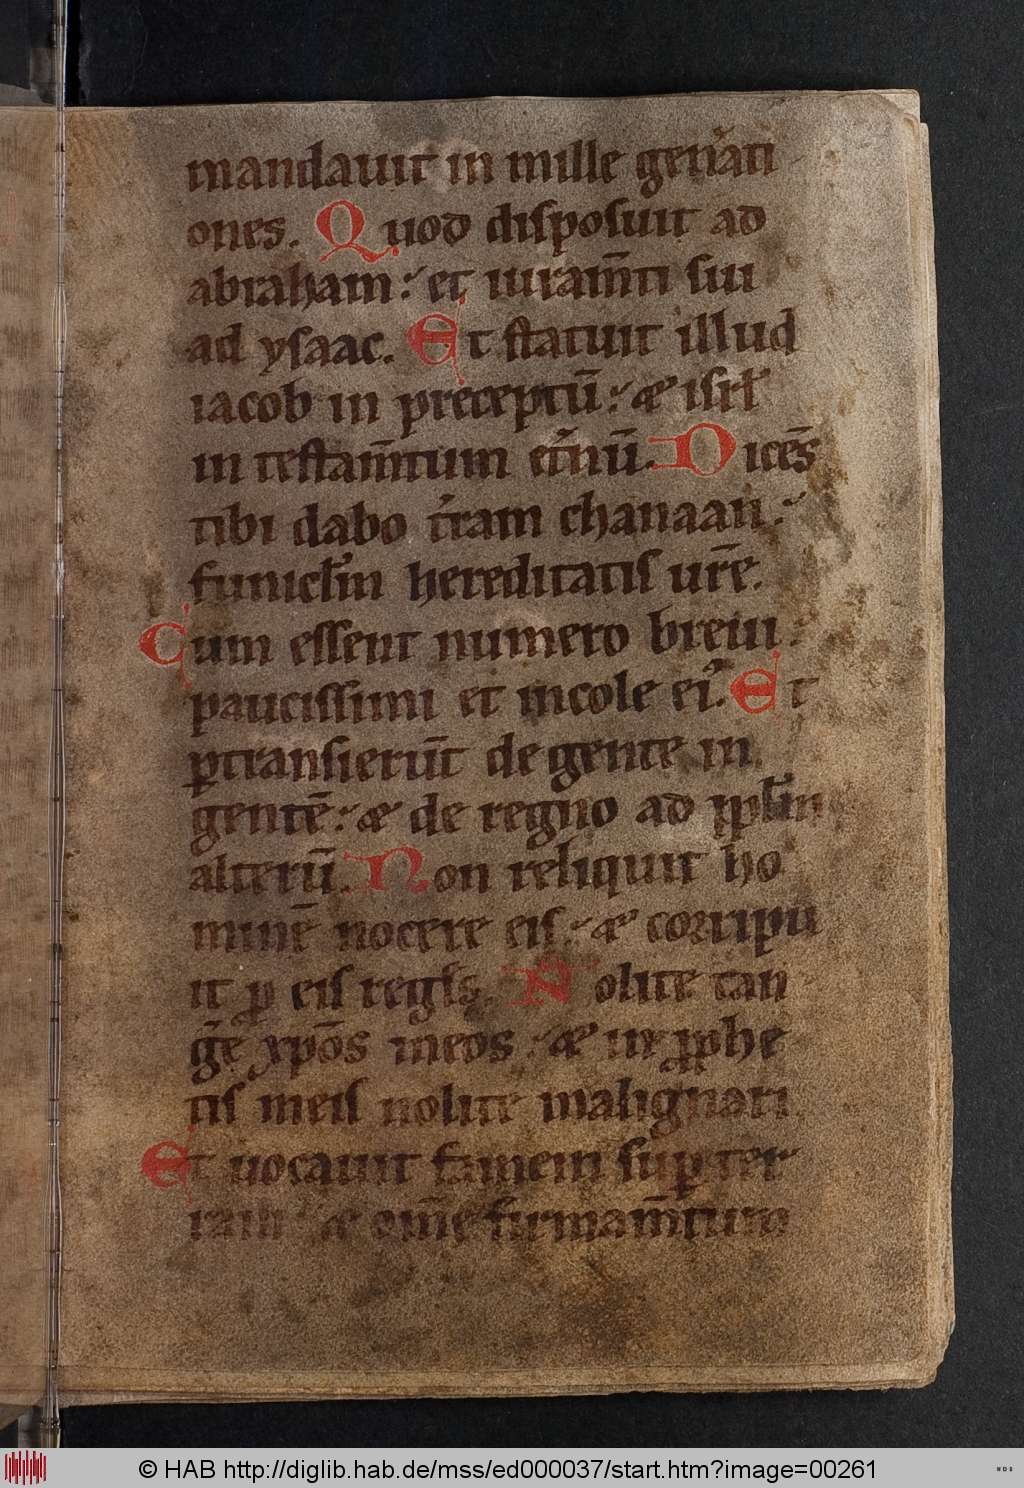 mandauit in mille gen̾ati
ones. Quod disposuit ad
abraham: et iuram̄ti sui
ad ysaac. Et statuit illud
iacob in preceptū: & isrł
in testam̄tum et̾nū. Dicēs
tibi dabo t̾ram chanaan:
funicłm hereditatis ur̄e.
Cum essent numero breui:
paucissimi et incole eiꝰ. Et
ꝑtransierūt de gente in
gentē: & de regno ad ppłm
alterū. Non reliquit ho
minē nocere eis: & corripu
it ꝓ eis reges. Nolite tan
ḡe xp̄os meos: & in ꝓphe
tis meis nolite malignari
Et uocauit famem suꝑ ter
ram & om̄e firmam̄tum
© HAB http://diglib.hab.de/mss/ed000037/start.htm?image=00261